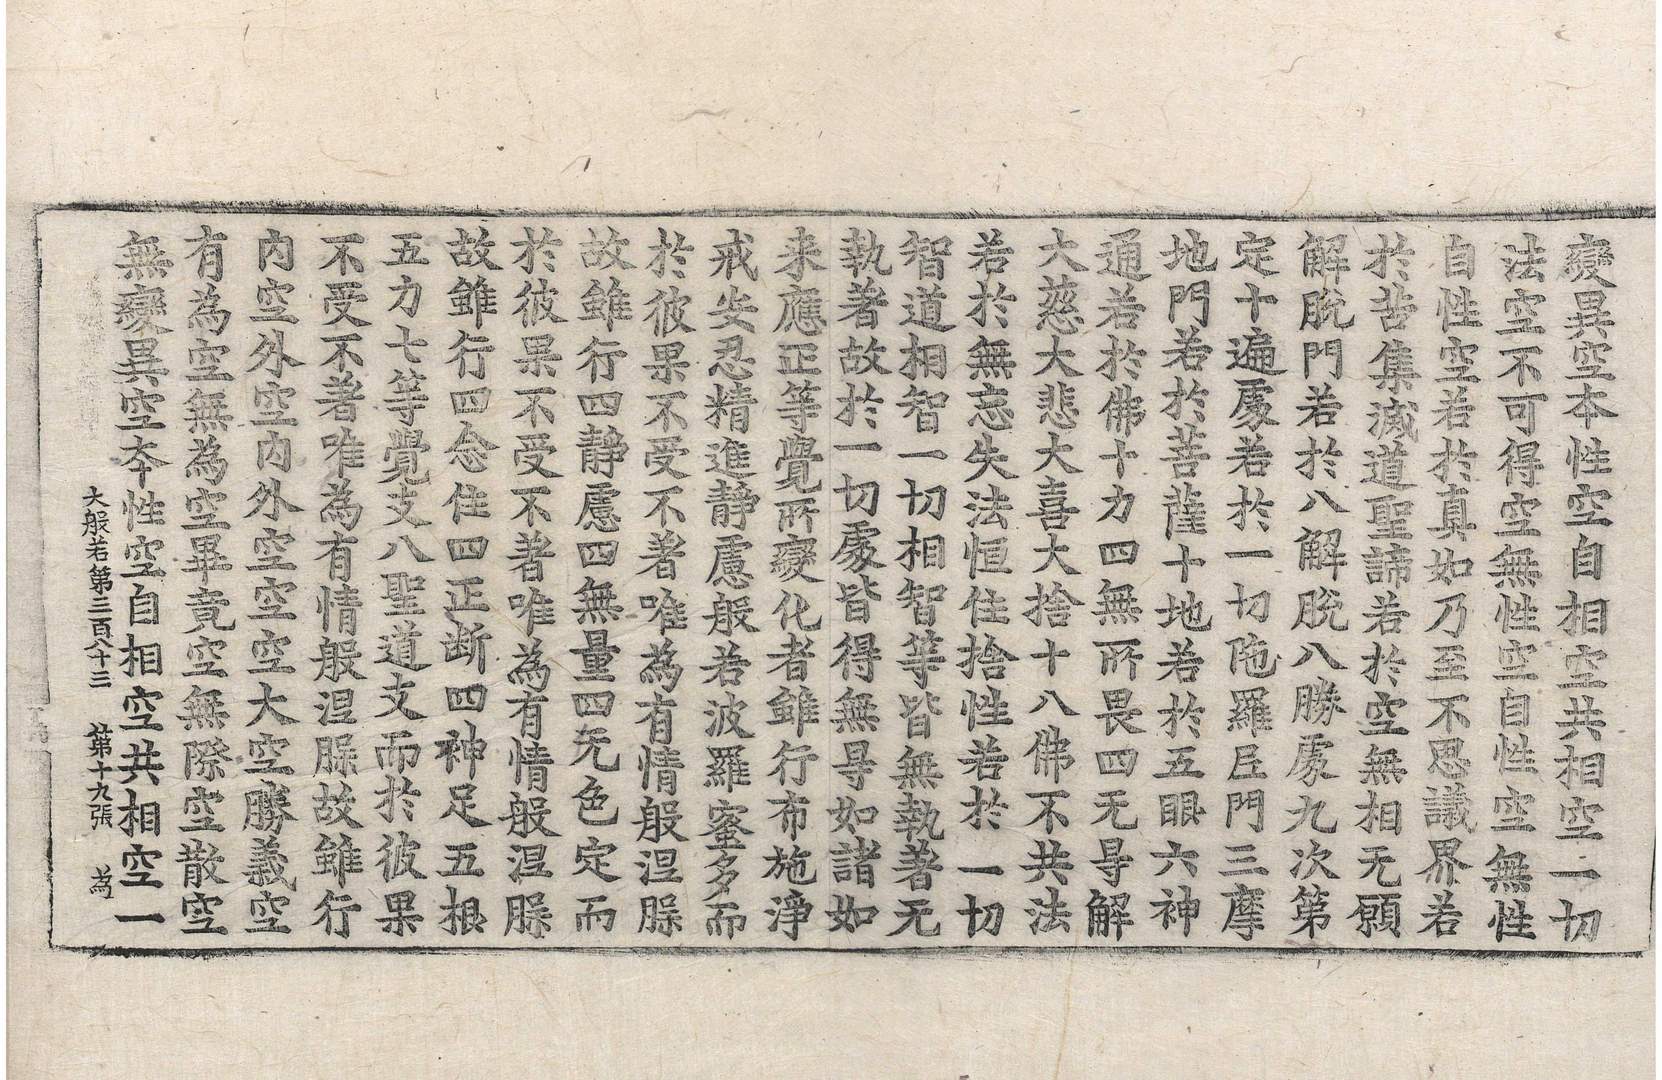 變異空本性空自相空共相空一切
法空不可得空無性空自性空無性
自性空若於真如乃至不思議界若
於苦集滅道聖諦若於空無相无願
解脫門若於八解脫八勝處九次第
定十遍處若於一切陁羅尼門三摩
地門若於菩薩十地若於五眼六神
通若於佛十力四無所畏四无㝵解
大慈大悲大喜大捨十八佛不共法
若於無忘失法恒住捨性若於一切
智道相智一切相智等皆無執著无
執著故於一切處皆得無㝵如諸如
来應正等覺所變化者雖行布施淨
戒安忍精進靜慮般若波羅蜜多而
於彼果不受不著唯為有情般涅槃
故雖行四靜慮四無量四无色定而
於彼果不受不著唯為有情般涅槃
故雖行四念住四正断四神足五根
五力七等覺支八聖道支而於彼果
不受不著唯為有情般涅槃故雖行
內空外空內外空空空大空勝義空
有為空無為空畢竟空無際空散空
無變異空本性空自相空共相空一
大般若第三百八十三 第十九張 為